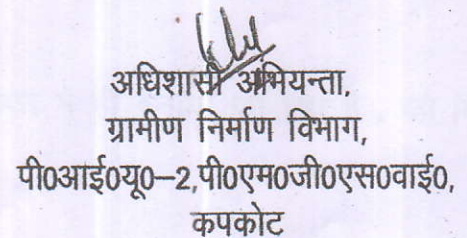 अधिशासी अभियन्ता,
ग्रामीण निर्माण विभाग,
पी0आई0यू0–2,पी0एम0जी0एस0वाई0,
कपकोट